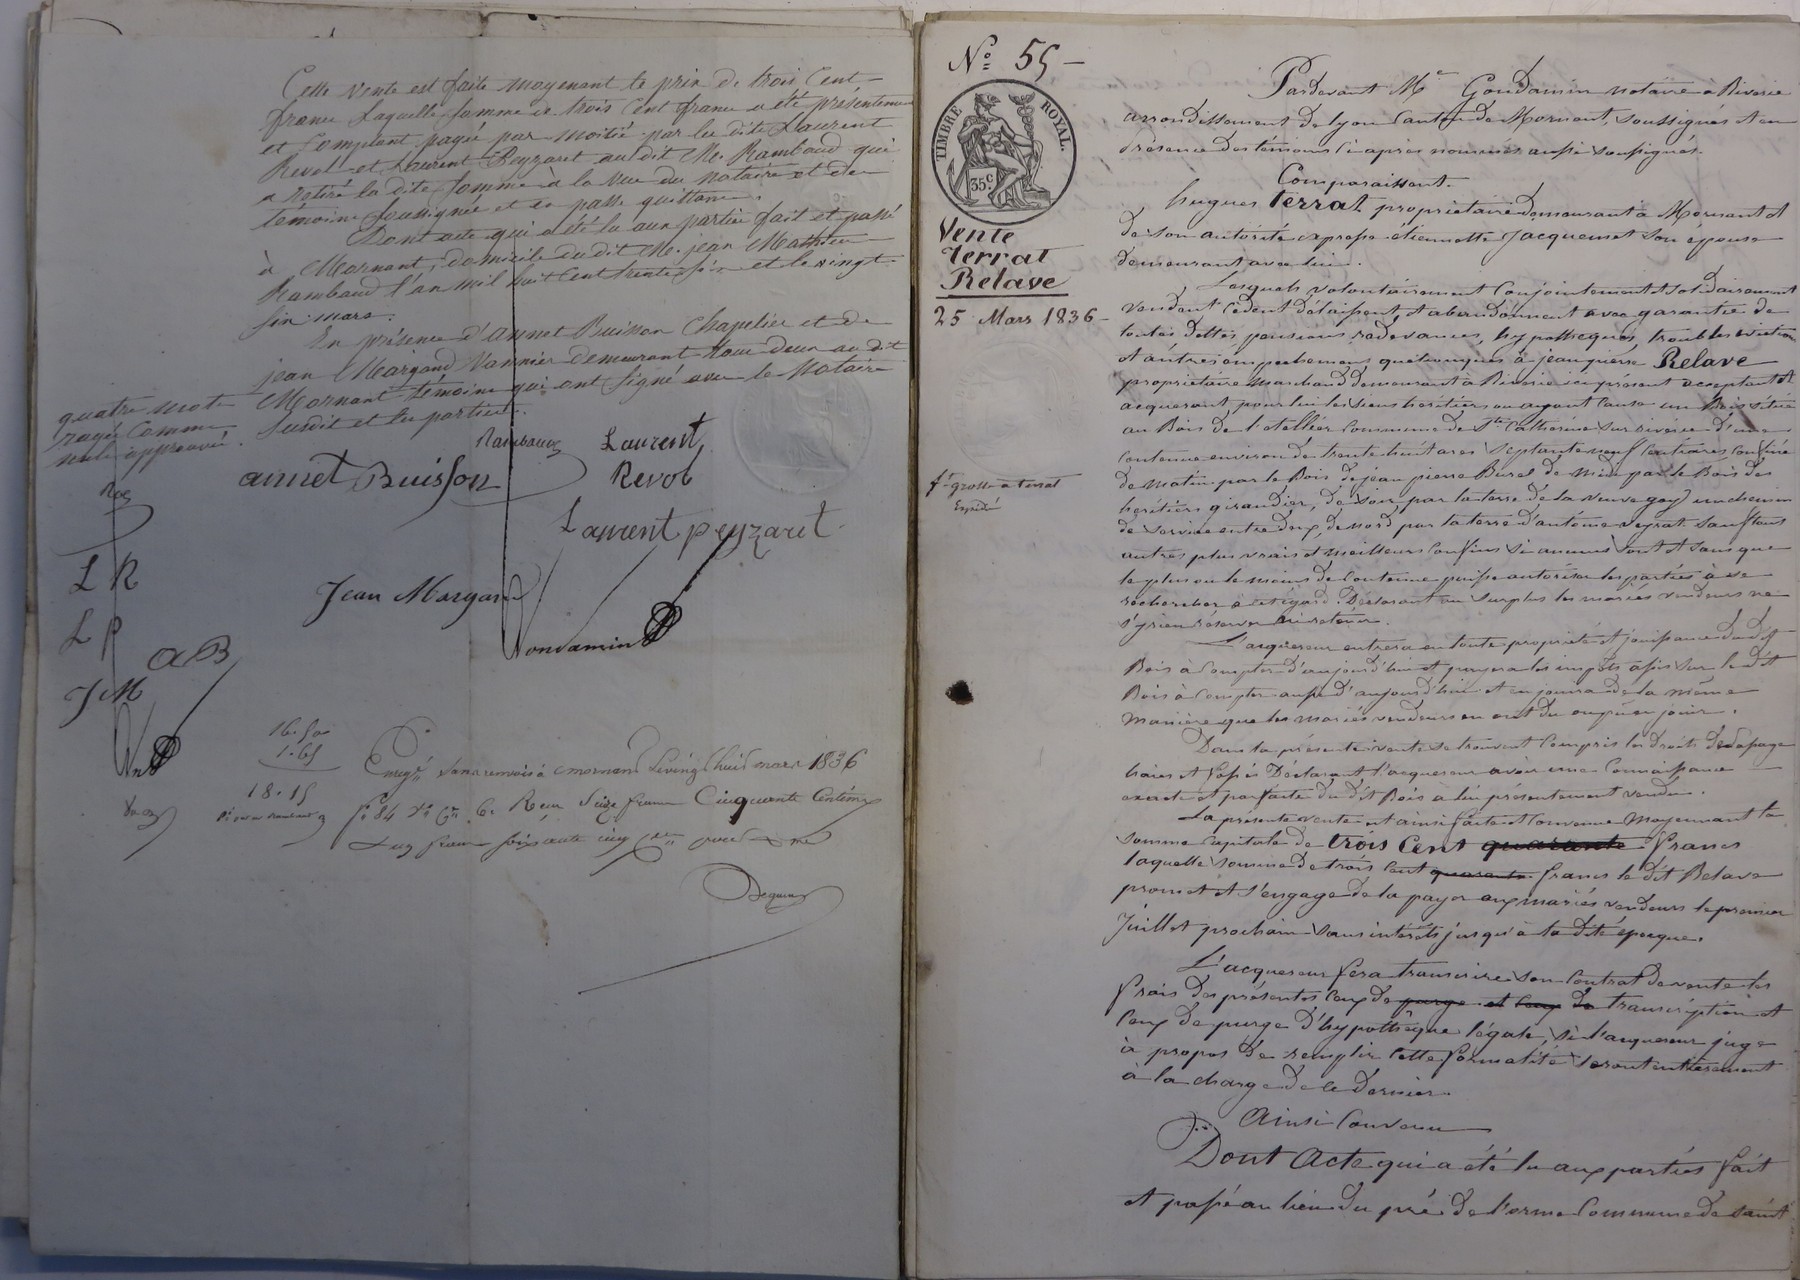 Cette vente est faite moyenant le prix de trois Cent
francs Laquelle somme de trois Cent francs a été présentement
et Comptent payée par moitié par les dits Laurent
Revol et Laurent Peyzaret au dit Me. Rambaud qui
a retiré la dite somme à la vue du notaire et des
témoins soussignés et en passe quittance.
Dont acte qui a été lu aux parties fait et passé
à Mornant, domicile du dit Me. jean Mathieu
Rambaud l'an mil huit cent trente six et le vingt
six mars.
En présence d'annet Buisson Chapelier et de
jean Margand Vannier demeurant tous deux au dit
Mornant témoins qui ont signé avec le Notaire
susdit et les parties.
quatre mots
rayés comme
nuls approuvés.
Rambaud
Laurent
Revol
annet Buisson
Laurent peyzaret
L R
Jean Margand
L P
Gondamin
A B
J M
16. 50
1. 65
18. 15
Enregé sans renvois à mornant le vingt huit mars 1836
fo 84 Vo Cen 6. Reçu Seize francs Cinquante Centimes
un franc soixante cinq cen pour
No 55
TIMBRE ROYAL.
35c.
Vente
Terrat
Relave
25 Mars 1836
gre grosse a terrat
Expédié
Pardevant Me Gondamin notaire à Riverie
arrondissement de lyon Canton de Mornant, soussignés et en
Présence des témoins ci après nommés aussi soussignés.
Comparaissent.
hugues Terrat propriétaire demeurant à Mornant et
de son autorité expresse étiennette Jacquemet son épouse
demeurant avec lui.
Lesquels volontairement Conjointement et solidairement
vendent cèdent délaissent et abandonnent avec garantie de
toutes dettes, pensions redevances, hypothèques, troubles évictions
et autres empêchements quelconques à jean pierre Relave
propriétaire marchand demeurant à Riverie ici présent acceptant et
acquerant pour lui les siens héritiers ou ayant cause un Bois situé
au Bois de l'atellier Commune de Ste Catherine sur riverie d'une
contenue environ de trente hectares septante neuf Centiares Confiné
de matin par le Bois de jean pierre Burel de midi par le Bois des
heritiers girandier, de soir par la terre de la veuve goy un chemin
de service entre deux, de Nord par la terre d'antoine veyrat sauf tous
autres plus vrais et meilleurs confins si aucuns sont et sans que
le plus ou le moins de Contenue puisse autoriser les parties à se
rechercher à cet égard. Déclarant au surplus les mariés vendeurs ne
s'y rien réserver ni retenir.
L'acquereur entrera en toute propriété et jouissance du dit
Bois à Compter d'aujourd'hui et payera les impôts assis sur le dit
Bois à Compter aussi d'aujourd'hui et en jouira de la même
Manière que les mariés vendeurs en ont du ou pu en jouir.
Dans la présente vente se trouvent Compris les droits
Déclarant l'acquereur avoir une Connaissance
exacte et parfaite du dit Bois a lui présentement vendu.
La présente vente est ainsi faite et Convenue Moyennant la
somme Capitale de trois Cent quarante francs
laquelle somme de trois Cent quarante francs le dit Relave
promet et s'engage de la payer aux mariés vendeurs le premier
Juillet prochain sans intérêts jusqu'à la dite époque.
L'acquereur fera transcrire son Contrat de vente les
frais des présentes Ceux de purge et Ceux de transcription et
Ceux de purge d'hypothèque légale, si l'acquereur juge
à propos de remplir cette formalité seront entièrement
à la charge de ce dernier.
Ainsi Convenu
Dont Acte qui a été lu aux parties fait
et passé au lieu du pré de l'orme Commune de saint